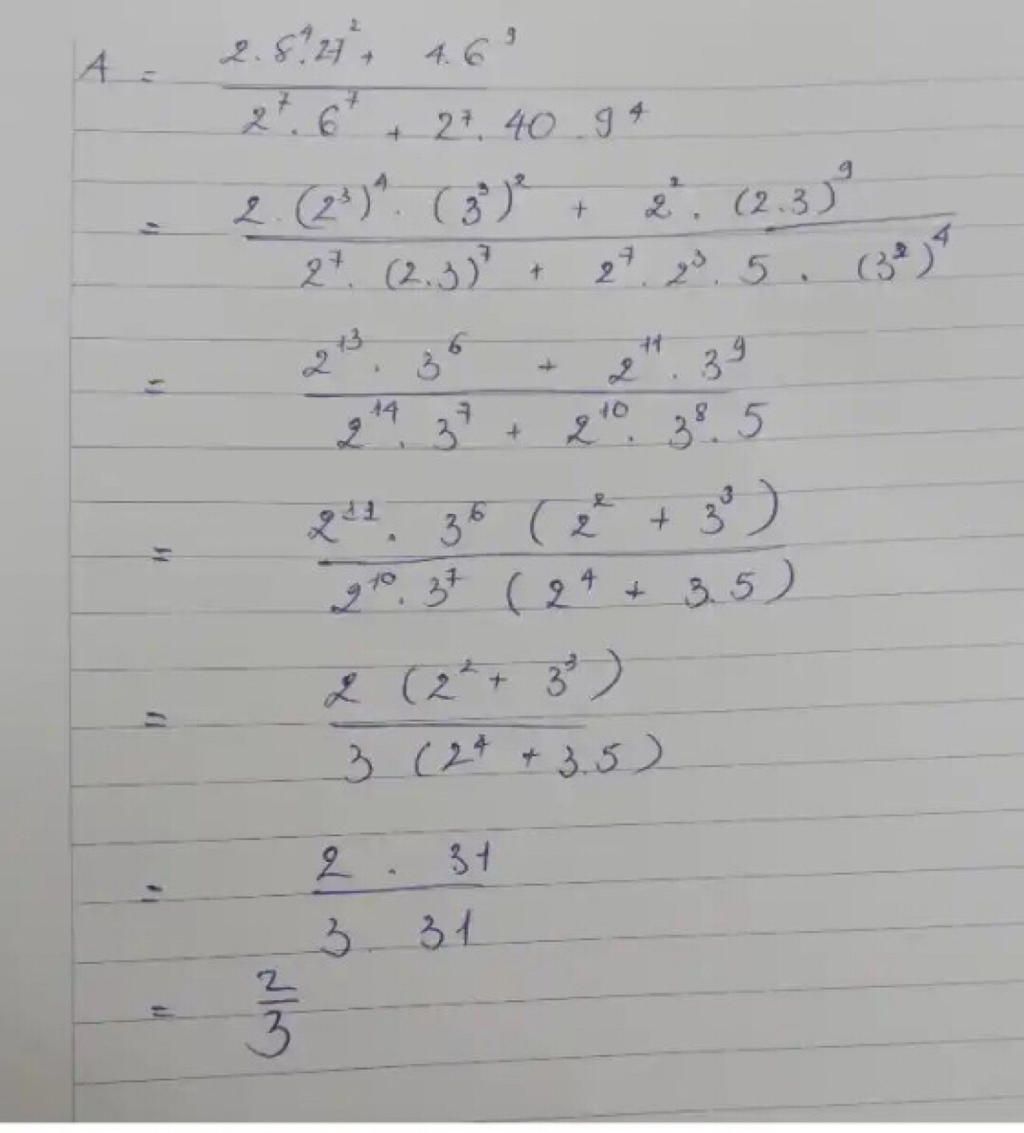 A = (2.8⁴.27² + 4.6⁹) / (2⁷.6⁷ + 2⁷.40.9⁴)
= (2.(2³)⁴.(3³)² + 2².(2.3)⁹) / (2⁷.(2.3)⁷ + 2⁷.2³.5.(3²)⁴)
= (2¹³.3⁶ + 2¹¹.3⁹) / (2¹⁴.3⁷ + 2¹⁰.3⁸.5)
= (2¹¹.3⁶(2² + 3³)) / (2¹⁰.3⁷(2⁴ + 3.5))
= (2(2² + 3³)) / (3(2⁴ + 3.5))
= (2.31) / (3.31)
= 2/3